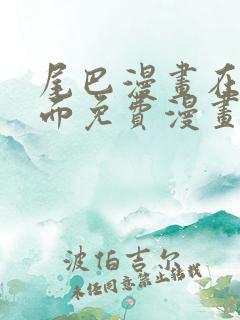 尾巴漫畫在
而免費漫畫
波伯吉尔
未经同意禁止转载